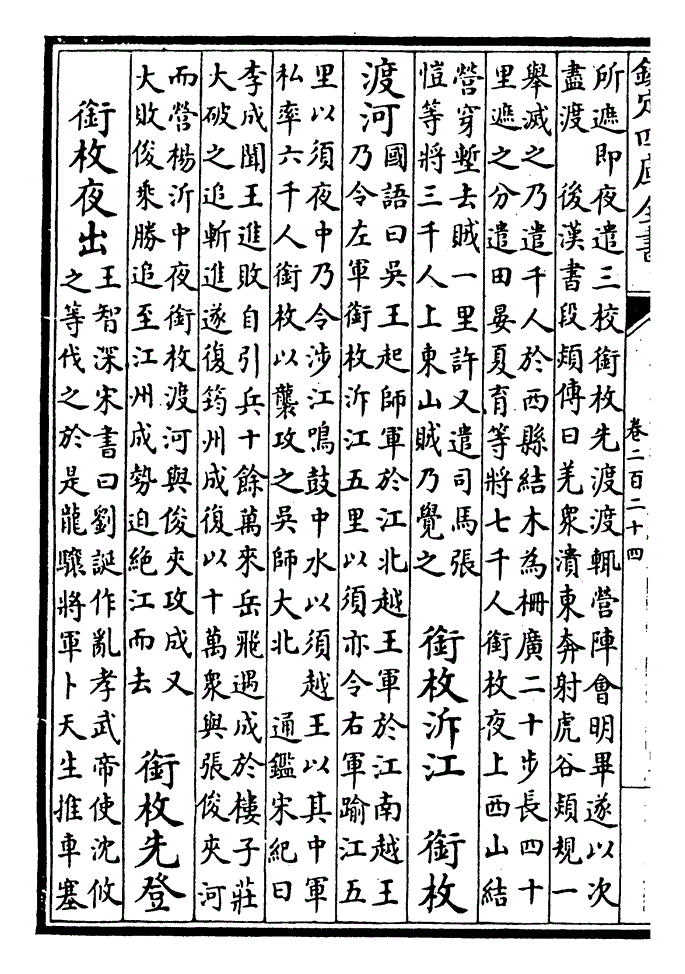 欽定四庫全書
卷二百二十四
所遮即夜遣三校銜枚先渡渡輒營陣會明畢遂以次
盡渡　後漢書段熲傳曰羌衆潰東奔射虎谷熲規一
舉滅之乃遣千人於西縣結木為柵廣二十步長四十
里遮之分遣田晏夏育等將七千人銜枚夜上西山結
營穿塹去賊一里許又遣司馬張
愷等將三千人上東山賊乃覺之
銜枚泝江　銜枚
渡河
國語曰吳王起師軍於江北越王軍於江南越王
乃令左軍銜枚泝江五里以須亦令右軍踰江五
里以須夜中乃令涉江鳴鼓中水以須越王以其中軍
私率六千人銜枚以襲攻之吳師大北　通鑑宋紀曰
李成聞王進敗自引兵十餘萬來岳飛遇成於樓子莊
大破之追斬進遂復筠州成復以十萬衆與張俊夾河
而營楊沂中夜銜枚渡河與俊夾攻成又
大敗俊乘勝追至江州成勢迫絶江而去
銜枚先登
銜枚夜出
王智深宋書曰劉誕作亂孝武帝使沈攸
之等伐之於是龍驤將軍卜天生推車塞